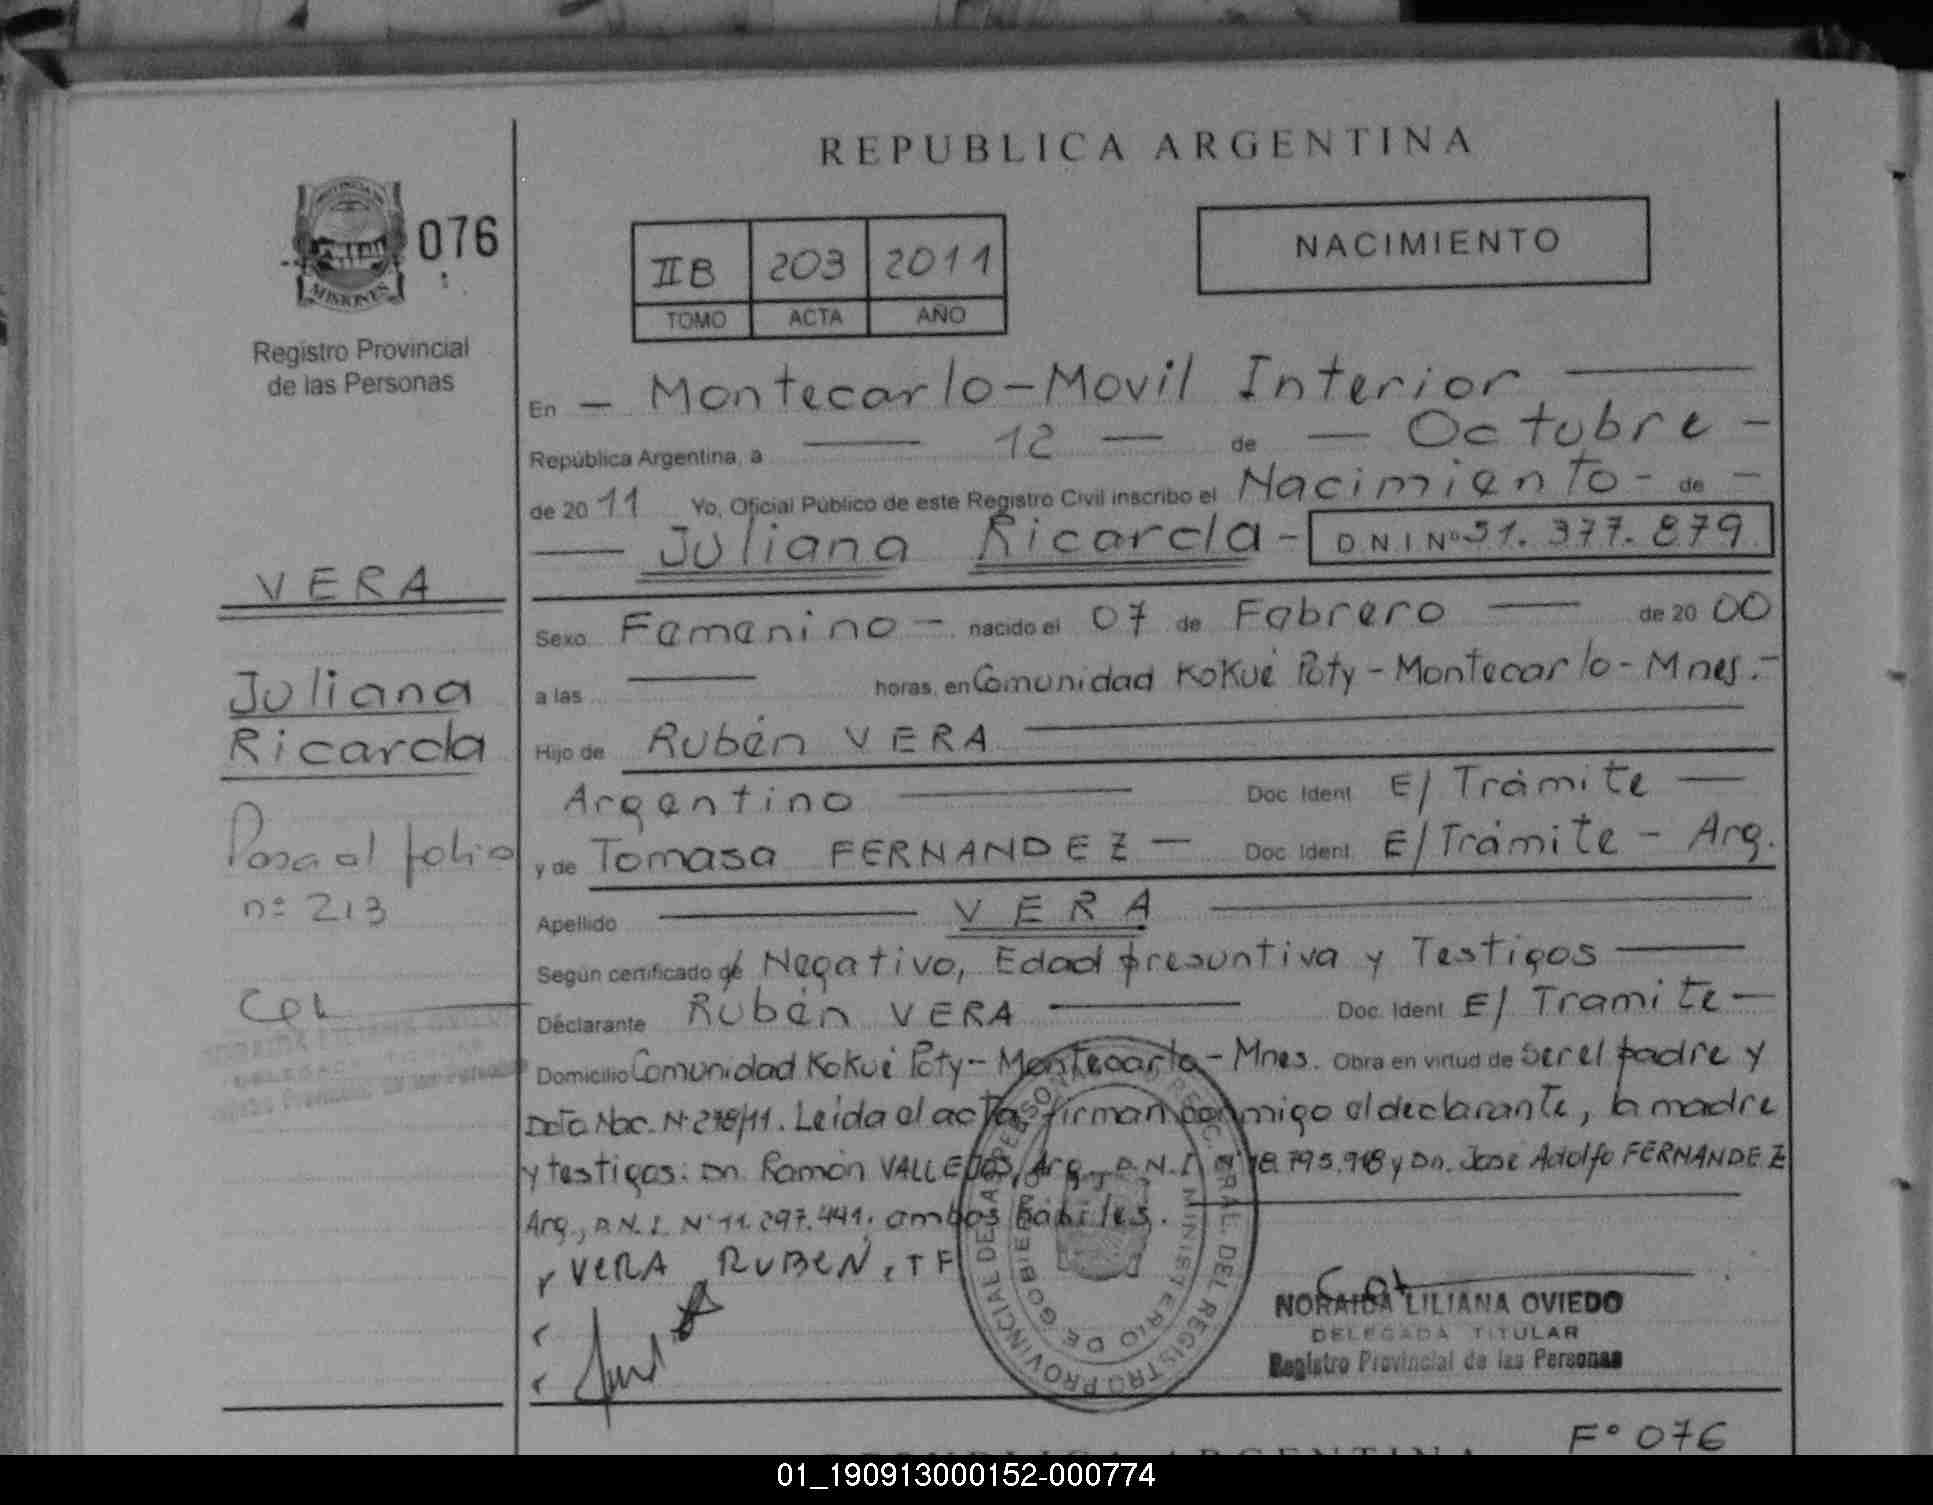 REPUBLICA ARGENTINA
MISIONES
076
Registro Provincial
de las Personas
IIB 203 2011
TOMO ACTA AÑO
NACIMIENTO
En - Montecarlo-Movil Interior
República Argentina, a 12 de Octubre -
de 2011 Yo, Oficial Público de este Registro Civil inscribo el Nacimiento - de -
Juliana Ricarda - D N I Nº 51.377.879
VERA
Juliana
Ricarda
Pasa al folio
nº 213
Sexo Femenino - nacido el 07 de Febrero de 2000
a las horas, en Comunidad Kokué Poty - Montecarlo - Mnes.-
Hijo de Rubén VERA
Argentino Doc. Ident. E/ Trámite
y de Tomasa FERNANDEZ - Doc. Ident. E/ Trámite - Arg.
Apellido VERA
Según certificado de Negativo, Edad presuntiva y Testigos
Declarante Rubén VERA Doc. Ident. E/ Tramite -
Domicilio Comunidad Kokué Poty - Montecarlo - Mnes. Obra en virtud de Ser el padre y
Dcto Nac. Nº 278/11. Leida el acta firman conmigo el declarante, la madre
y testigos: Dn. Ramón VALLEJOS, Arg., D.N.I. Nº 18.795.918 y Dn. José Adolfo FERNANDEZ
Arg., D.N.I. Nº 11.297.441, ambos hábiles.
VERA RUBEN, TF
REGISTRO PROVINCIAL DE LAS PERSONAS
MINISTERIO DE GOBIERNO
NORAIDA LILIANA OVIEDO
DELEGADA TITULAR
Registro Provincial de las Personas
Fº 076
REPUBLICA ARGENTINA
01_190913000152-000774